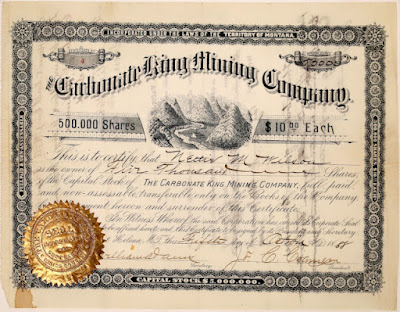 INCORPORATED UNDER THE LAWS OF THE TERRITORY OF MONTANA.
THE Carbonate King Mining Company
500.000 Shares $10.00 Each
This is to certify that M. Wilson
is the owner of Five Thousand Shares
of the Capital Stock of THE CARBONATE KING MINING COMPANY, full paid
and non-assessable transferable only on the Books of the Company
endorsement hereon and surrender of this Certificate.
In Witness Whereof the said Corporation has caused its Corporate Seal
to be affixed and this Certificate to be signed by its and Secretary
at Helena, M.T. this 18
SEAL
CAPITAL STOCK $5.000.000.